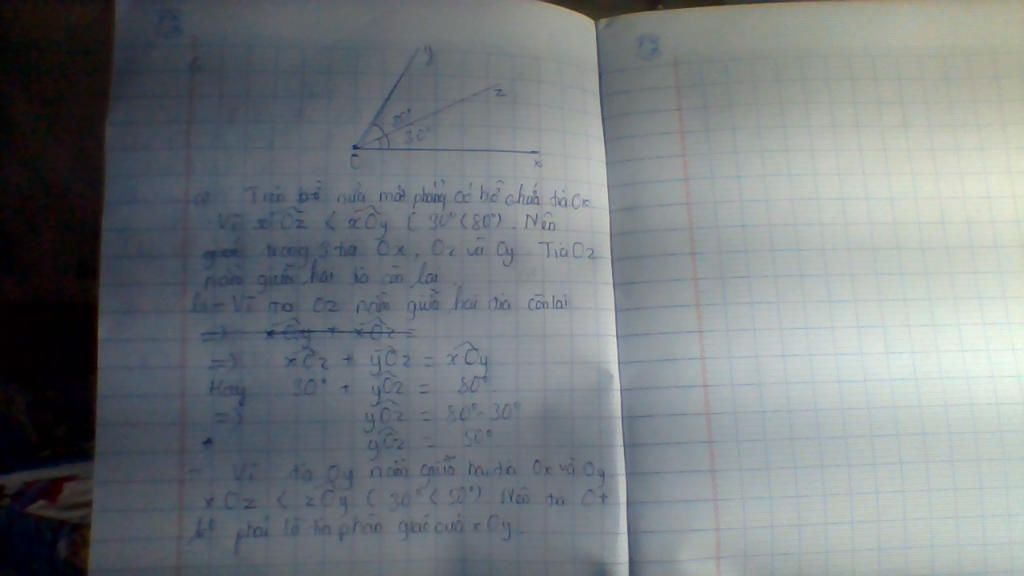 y
z
80°
30°
O
x
a) Trên bờ nửa mặt phẳng có bờ chứa tia Ox
Vì xÔz < xÔy ( 30° < 80° ). Nên
trong 3 tia Ox, Oz và Oy. Tia Oz
nằm giữa hai tia còn lại
b - Vì tia Oz nằm giữa hai tia còn lại
=> xÔy + xÔz =
=> xÔz + yÔz = xÔy
Hay 30° + yÔz = 80°
=> yÔz = 80° - 30°
yÔz = 50°
- Vì tia Oy nằm giữa hai tia Ox và Oy
xOz < zOy ( 30° < 50° ). Nên tia Ot
phải là tia phân giác của xOy.